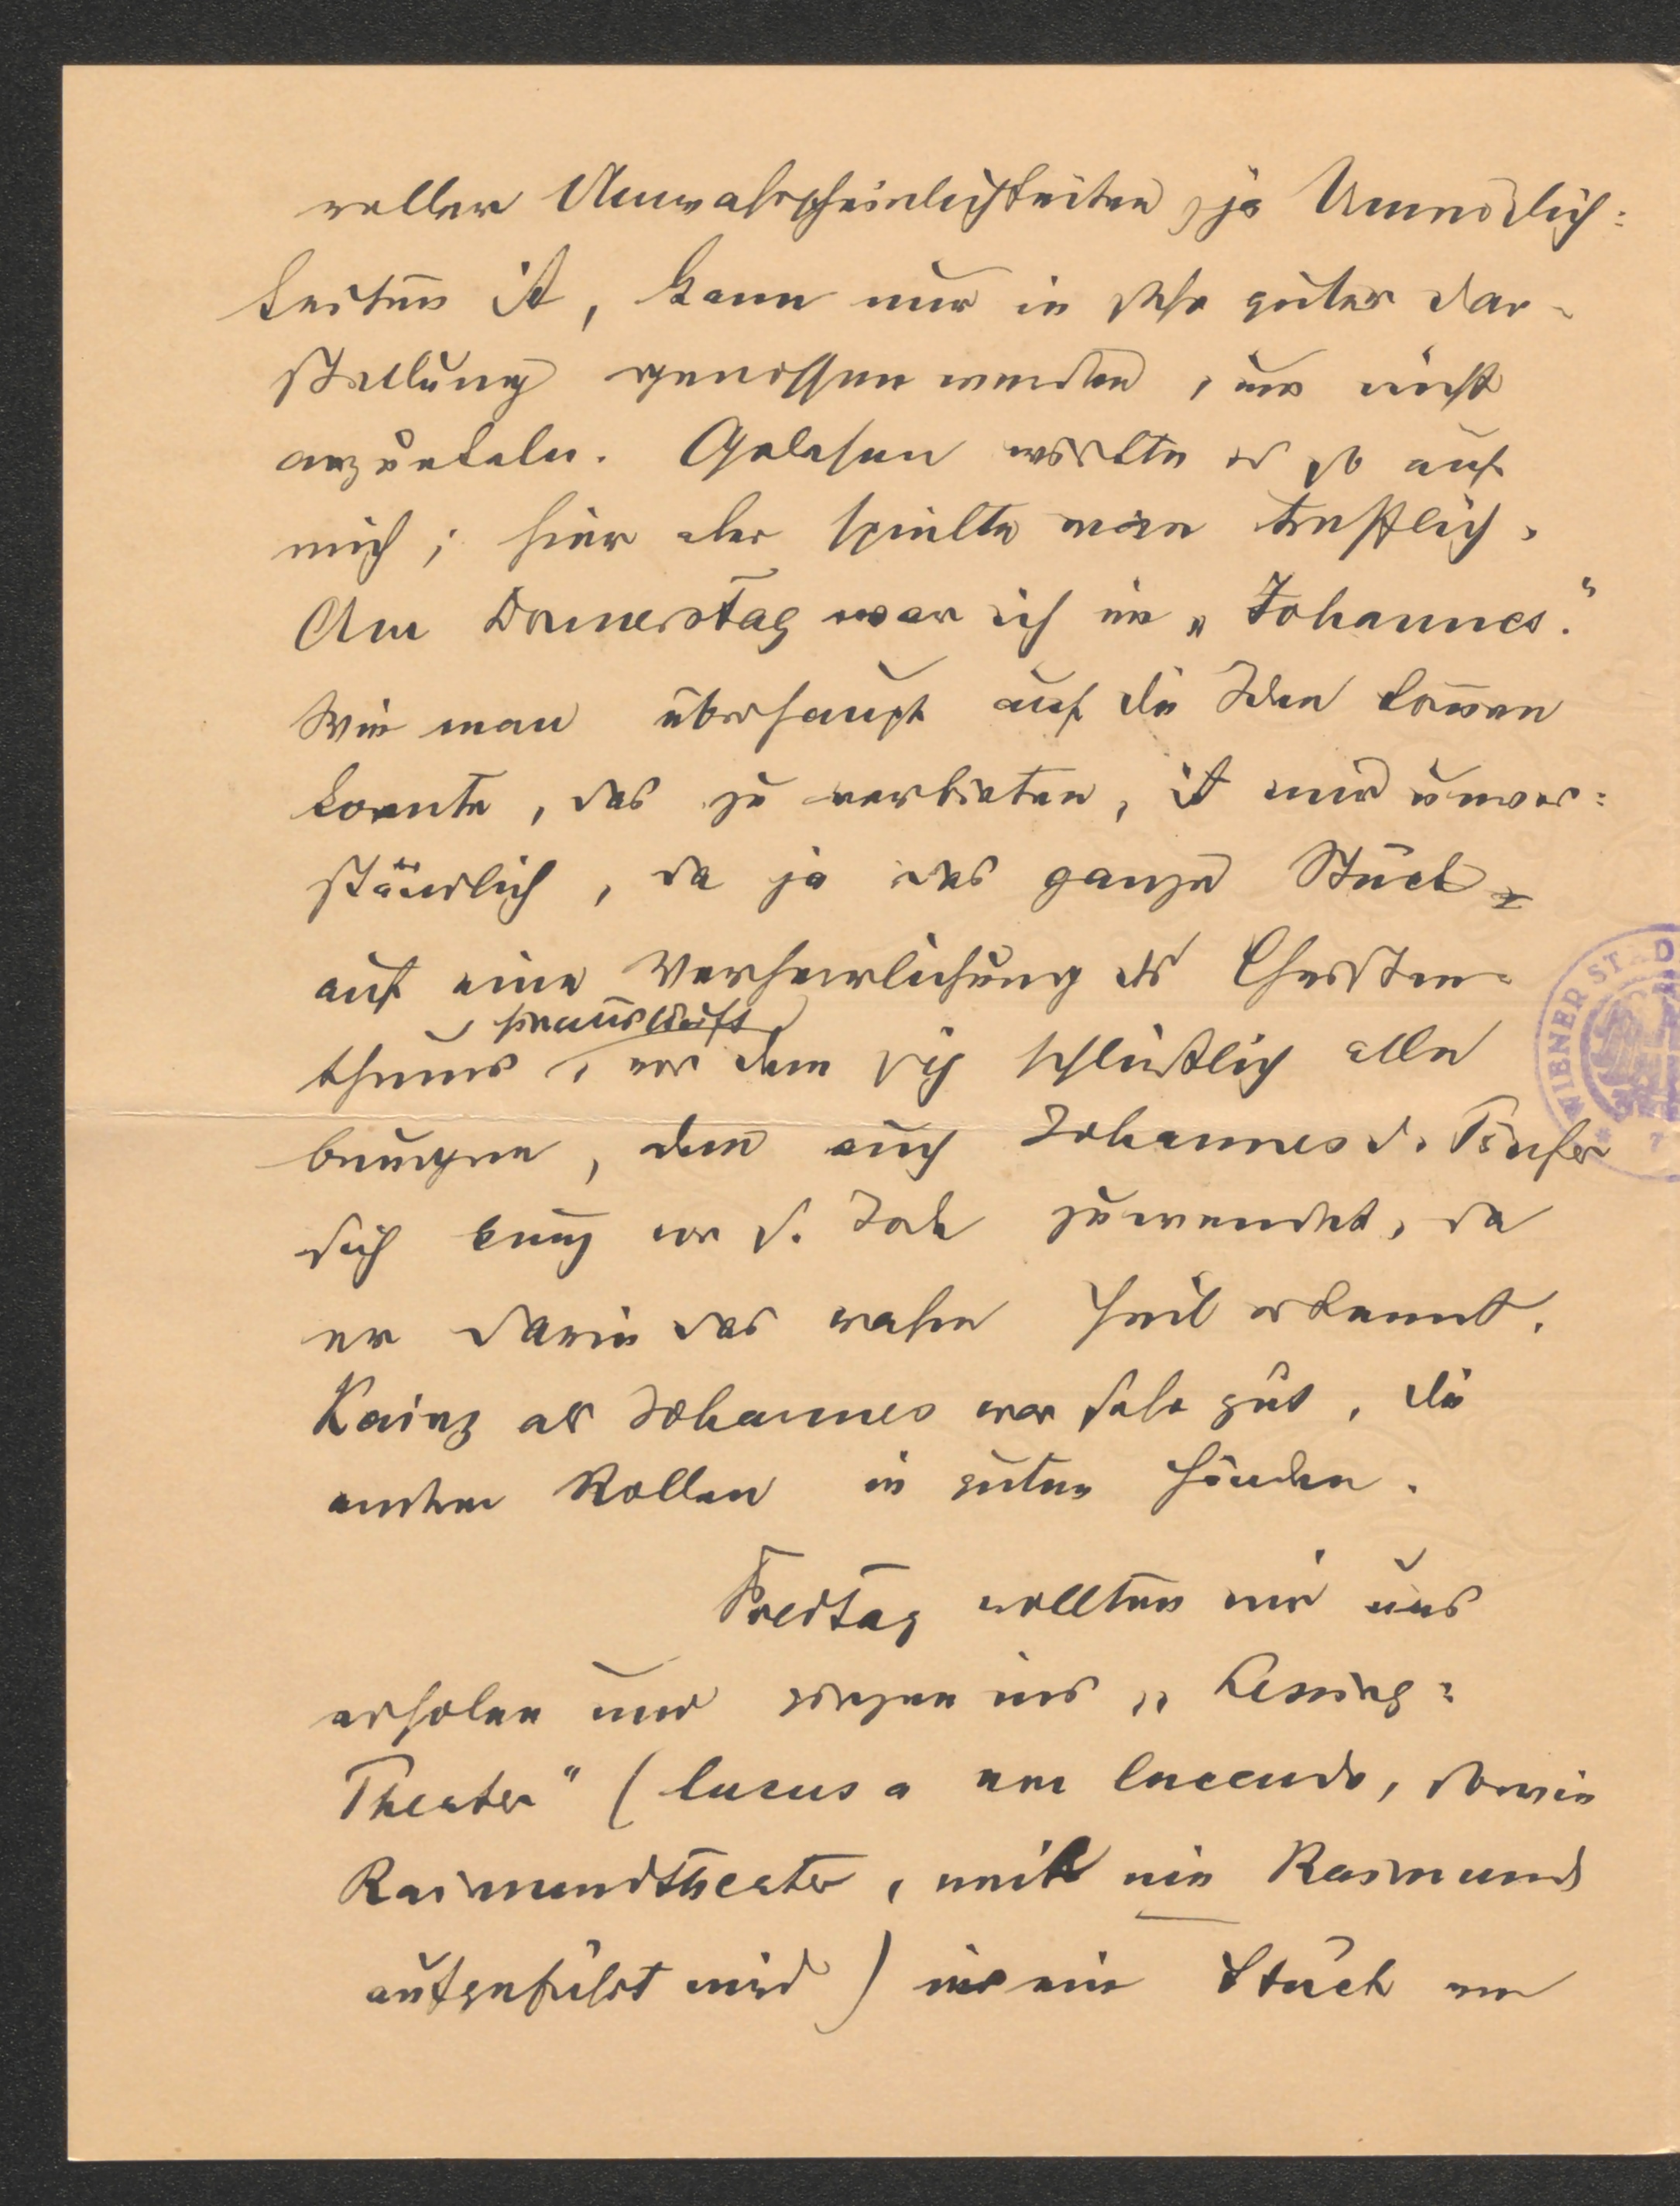 voller Unwahrscheinlichkeiten, ja Unmöglich=
keiten ist, kann nur in sehr guter Dar-
stellung genossen werden, um nicht
anzuekeln. Gelesen wirkte es so auf
mich; hier aber spielte man trefflich.
Am Donnerstag war ich im „Johannes."
Wie man überhaupt auf die Idee kom̅en
konnte, das zu verbieten, ist mir unver=
ständlich, da ja das ganze Stück
auf eine Verherrlichung des Christen=
hinausläuft
thums, vor dem sich schließlich alle
beugen, dem auch Johannes d. Täufer
sich kurz vor s. Tode zuwendet, da
er darin das wahre Heil erkennt.
Kainz als Johannes war sehr gut, die
andren Rollen in guten Händen.
Freitag wollten wir uns
erholen und gingen ins „Lessing=
Theater" (lucus a non lucendo, sowie
Raimundtheater, weil nie Raimund
aufgeführt wird) in ein Stück von
WIENER STAD